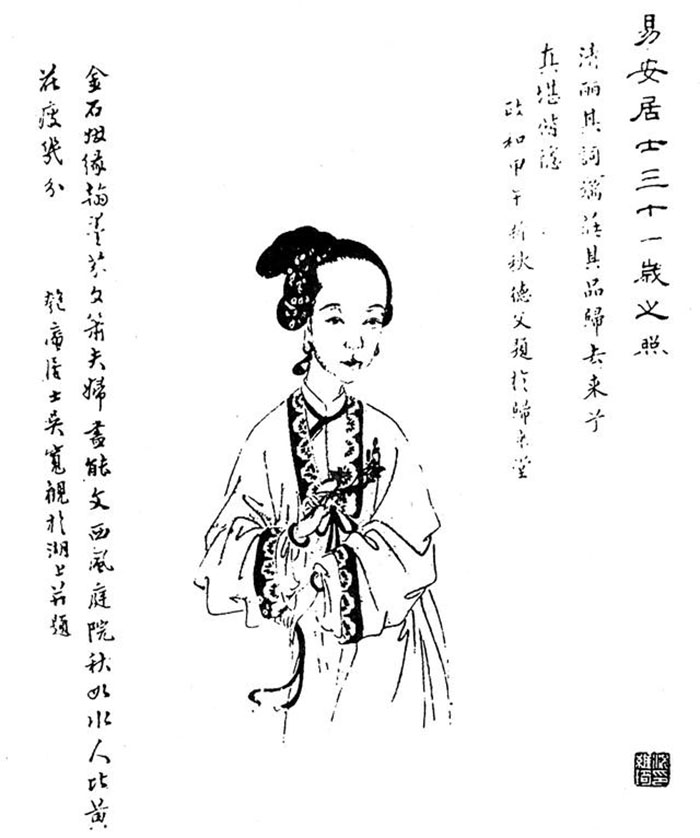 易安居士三十一歲之照
清丽其詞端莊其品歸去來兮
真堪偕隱
政和甲午新秋德父題於歸來堂
金石姻緣翰墨芬文簫夫婦盡能文西風庭院秋如水人比黃
花瘦幾分
匏庵居士吳寬觀於湖上并題